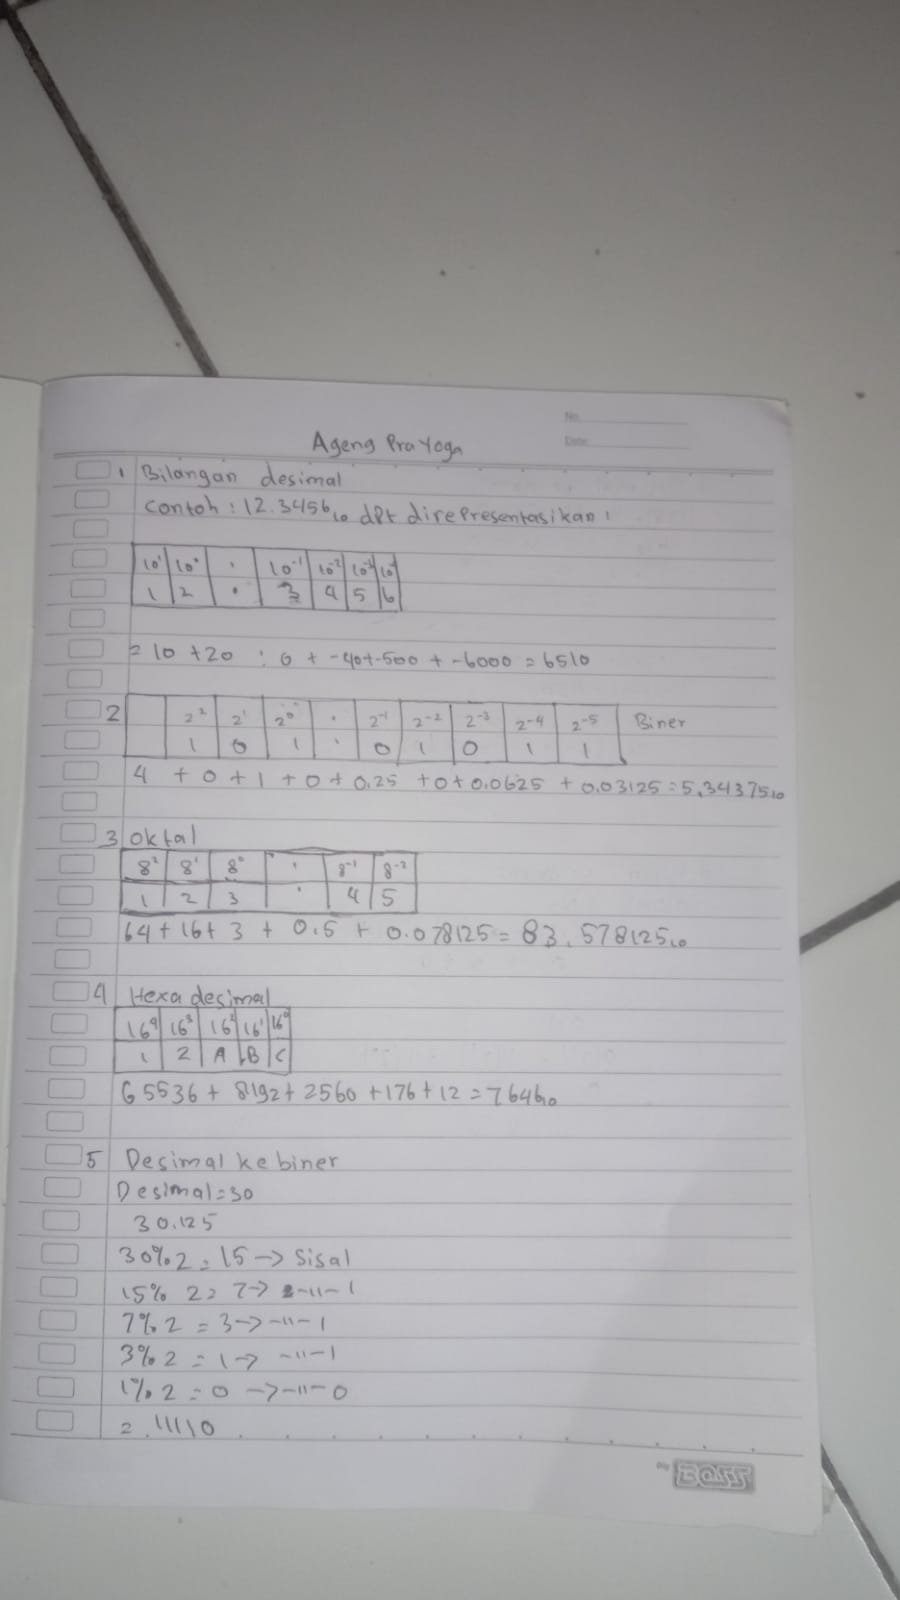 No.
Date
Ageng Prayoga
1 Bilangan desimal
Contoh : 12.3456₁₀ dpt direpresentasikan :
10¹ 10⁰ . 10⁻¹ 10⁻² 10⁻³ 10⁻⁴
1 2 . 3 4 5 6
= 10 + 20 : 0 + -40 + -500 + -6000 = 6510
2 2² 2¹ 2⁰ . 2⁻¹ 2⁻² 2⁻³ 2⁻⁴ 2⁻⁵ Biner
1 0 1 . 0 1 0 1 1
4 + 0 + 1 + 0 + 0,25 + 0 + 0,0625 + 0,03125 = 5,34375₁₀
3 Oktal
8² 8¹ 8⁰ . 8⁻¹ 8⁻²
1 2 3 . 4 5
64 + 16 + 3 + 0.5 + 0.078125 = 83,578125₁₀
4 Hexa desimal
16⁴ 16³ 16² 16¹ 16⁰
1 2 A B C
65536 + 8192 + 2560 + 176 + 12 = 7646₁₀
5 Desimal ke biner
Desimal = 30
30.125
30%2 = 15 -> Sisa1
15% 2 = 7 -> -11-1
7%2 = 3 -> -11-1
3%2 = 1 -> -11-1
1%2 = 0 -> -11-0
= 11110
BOSS